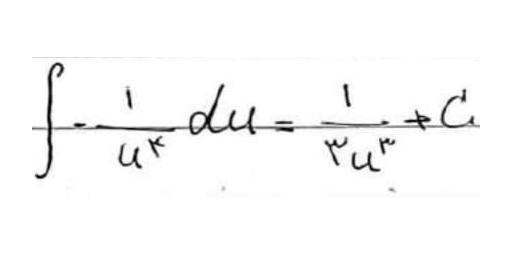 ∫ - ۱/u^۴ du = ۱/۳u^۳ + C